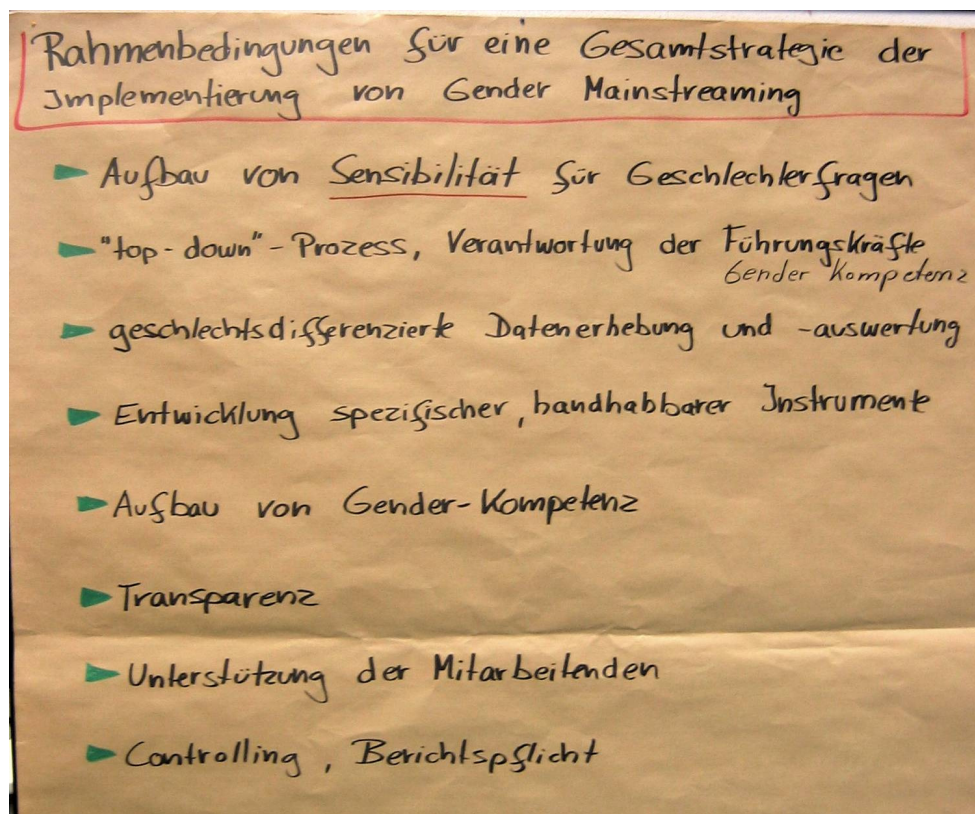 Rahmenbedingungen für eine Gesamtstrategie der
Implementierung von Gender Mainstreaming
Aufbau von Sensibilität für Geschlechterfragen
"top-down"-Prozess, Verantwortung der Führungskräfte
Gender Kompetenz
geschlechtsdifferenzierte Datenerhebung und -auswertung
Entwicklung spezifischer, handhabbarer Instrumente
Aufbau von Gender-Kompetenz
Transparenz
Unterstützung der Mitarbeitenden
Controlling, Berichtspflicht